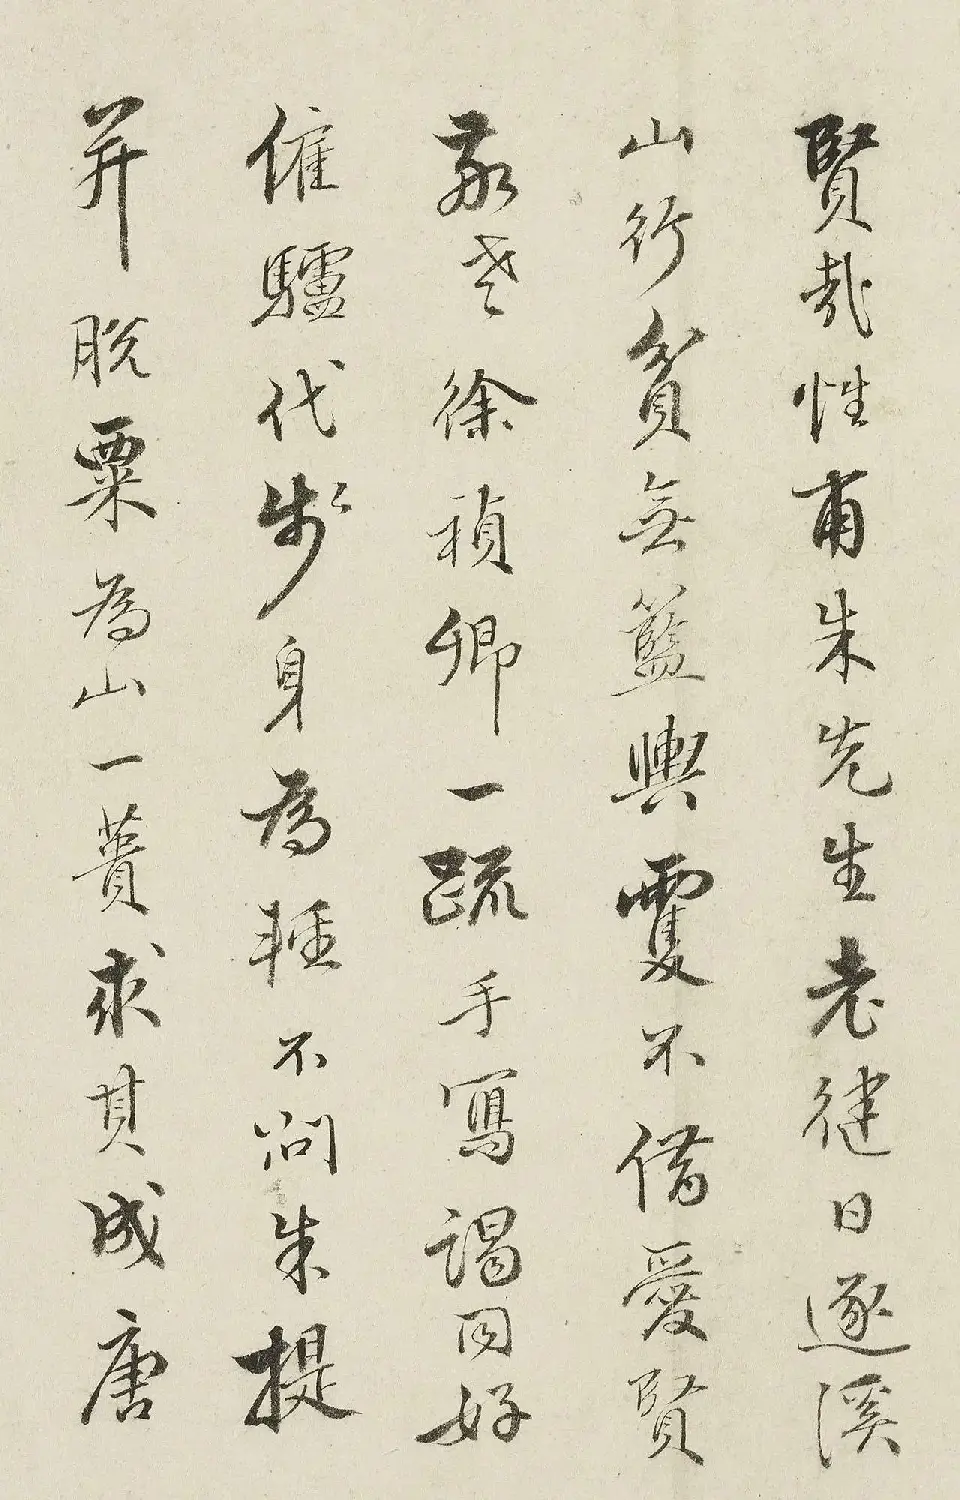 賢哉性甫朱先生老健日逐溪
山行貧無籃輿更不借愛賢
敬老徐禎卿一疏手寫謁同好
僱驢代步身為輕不問朱提
并脫粟為山一蕢求其成唐